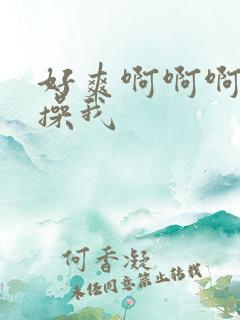 好爽啊啊啊
操我
何香凝
未经同意禁止转载